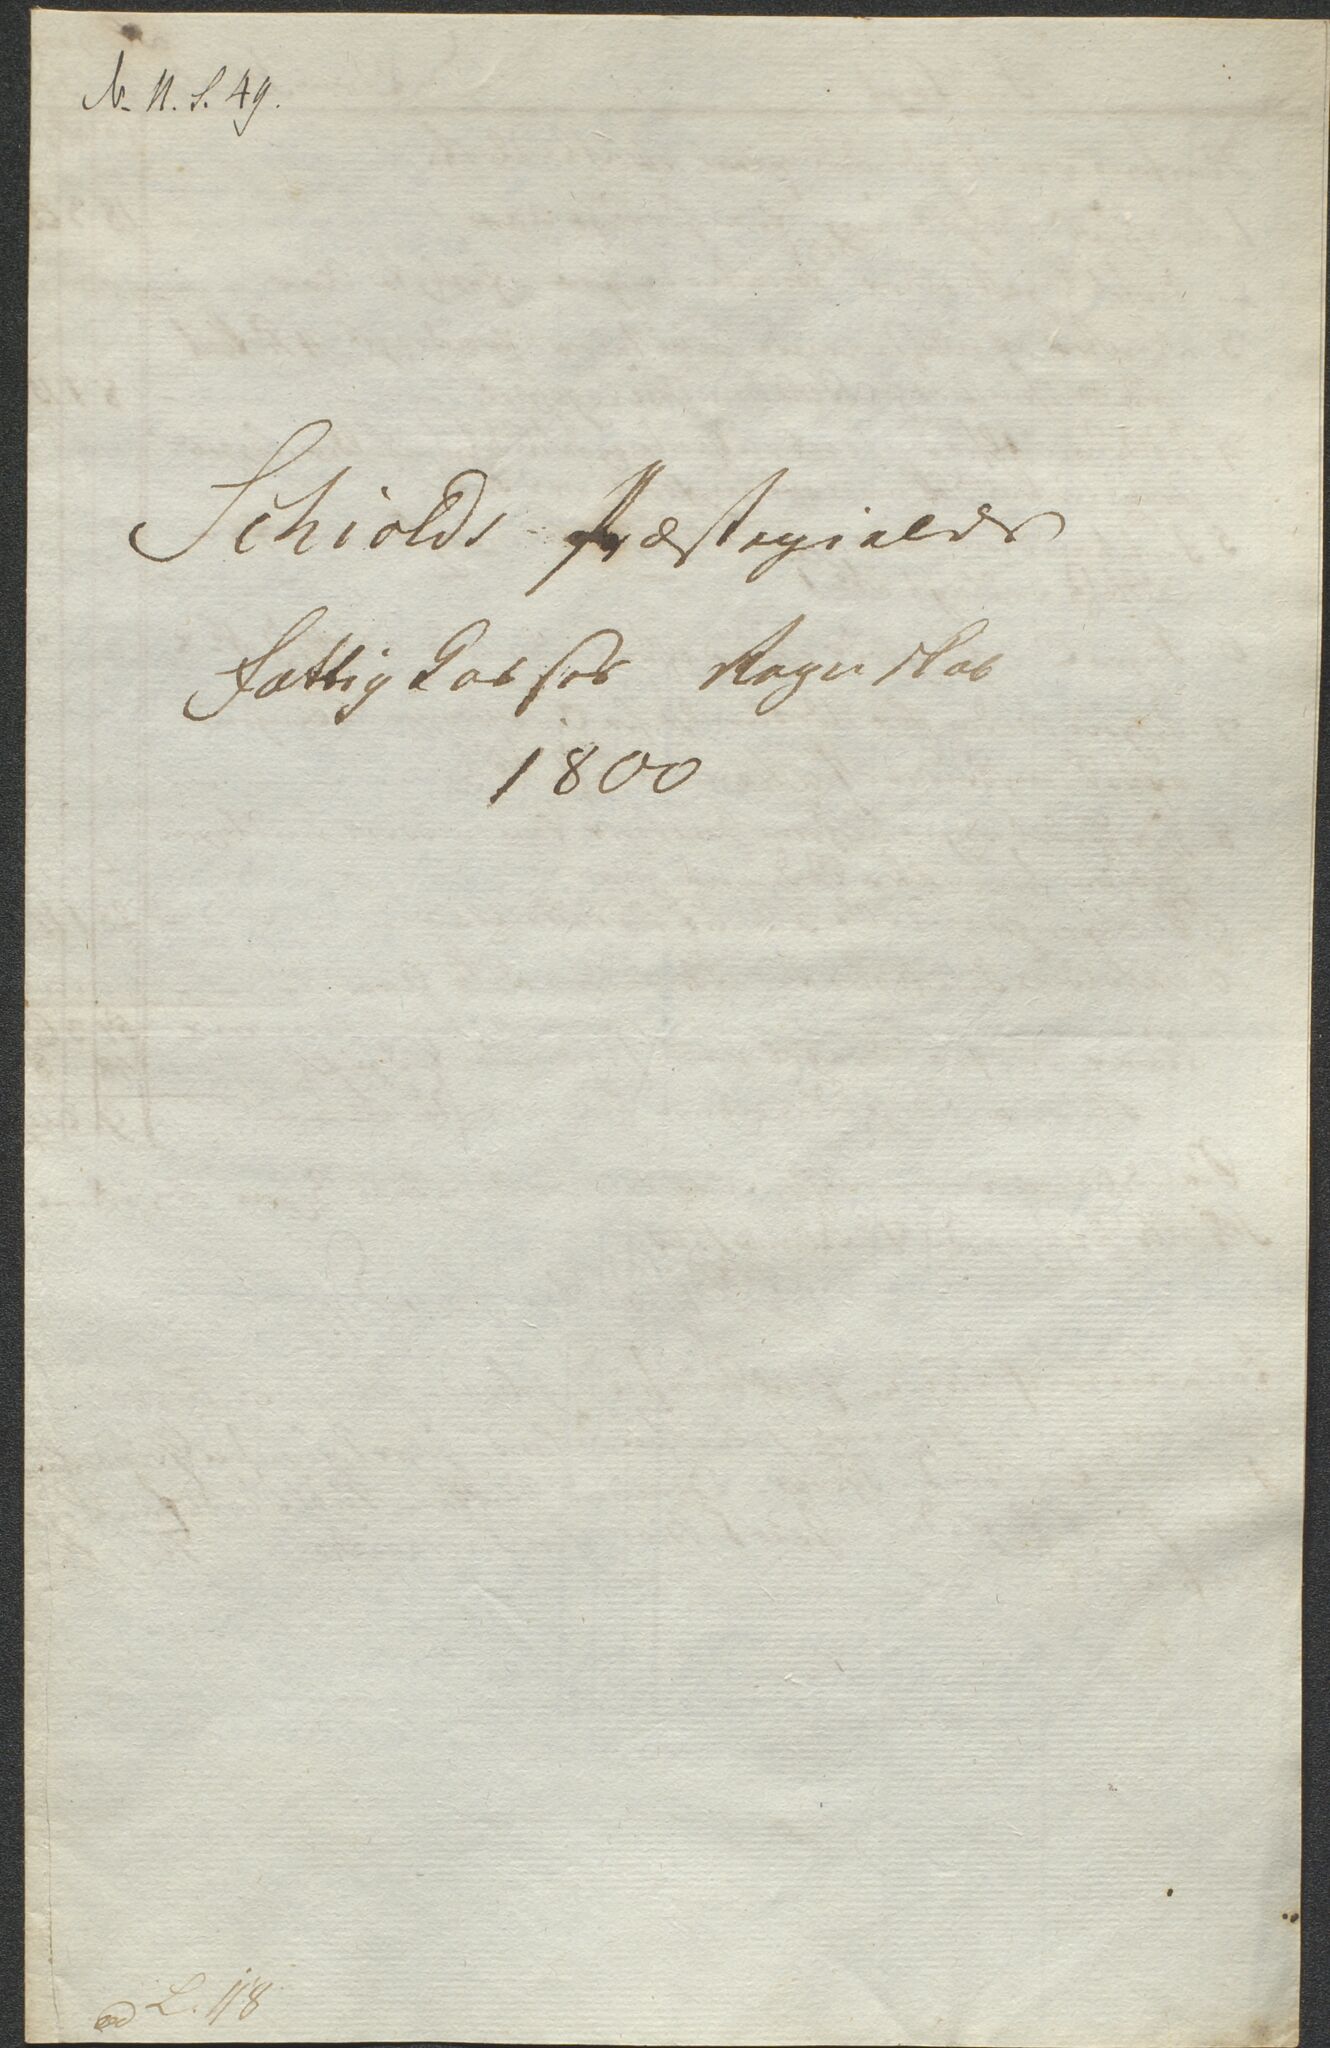 N. 11. S. 49.
Schiolds Præstegields
Fattig Casses Regnskab
1800
ad L. 118